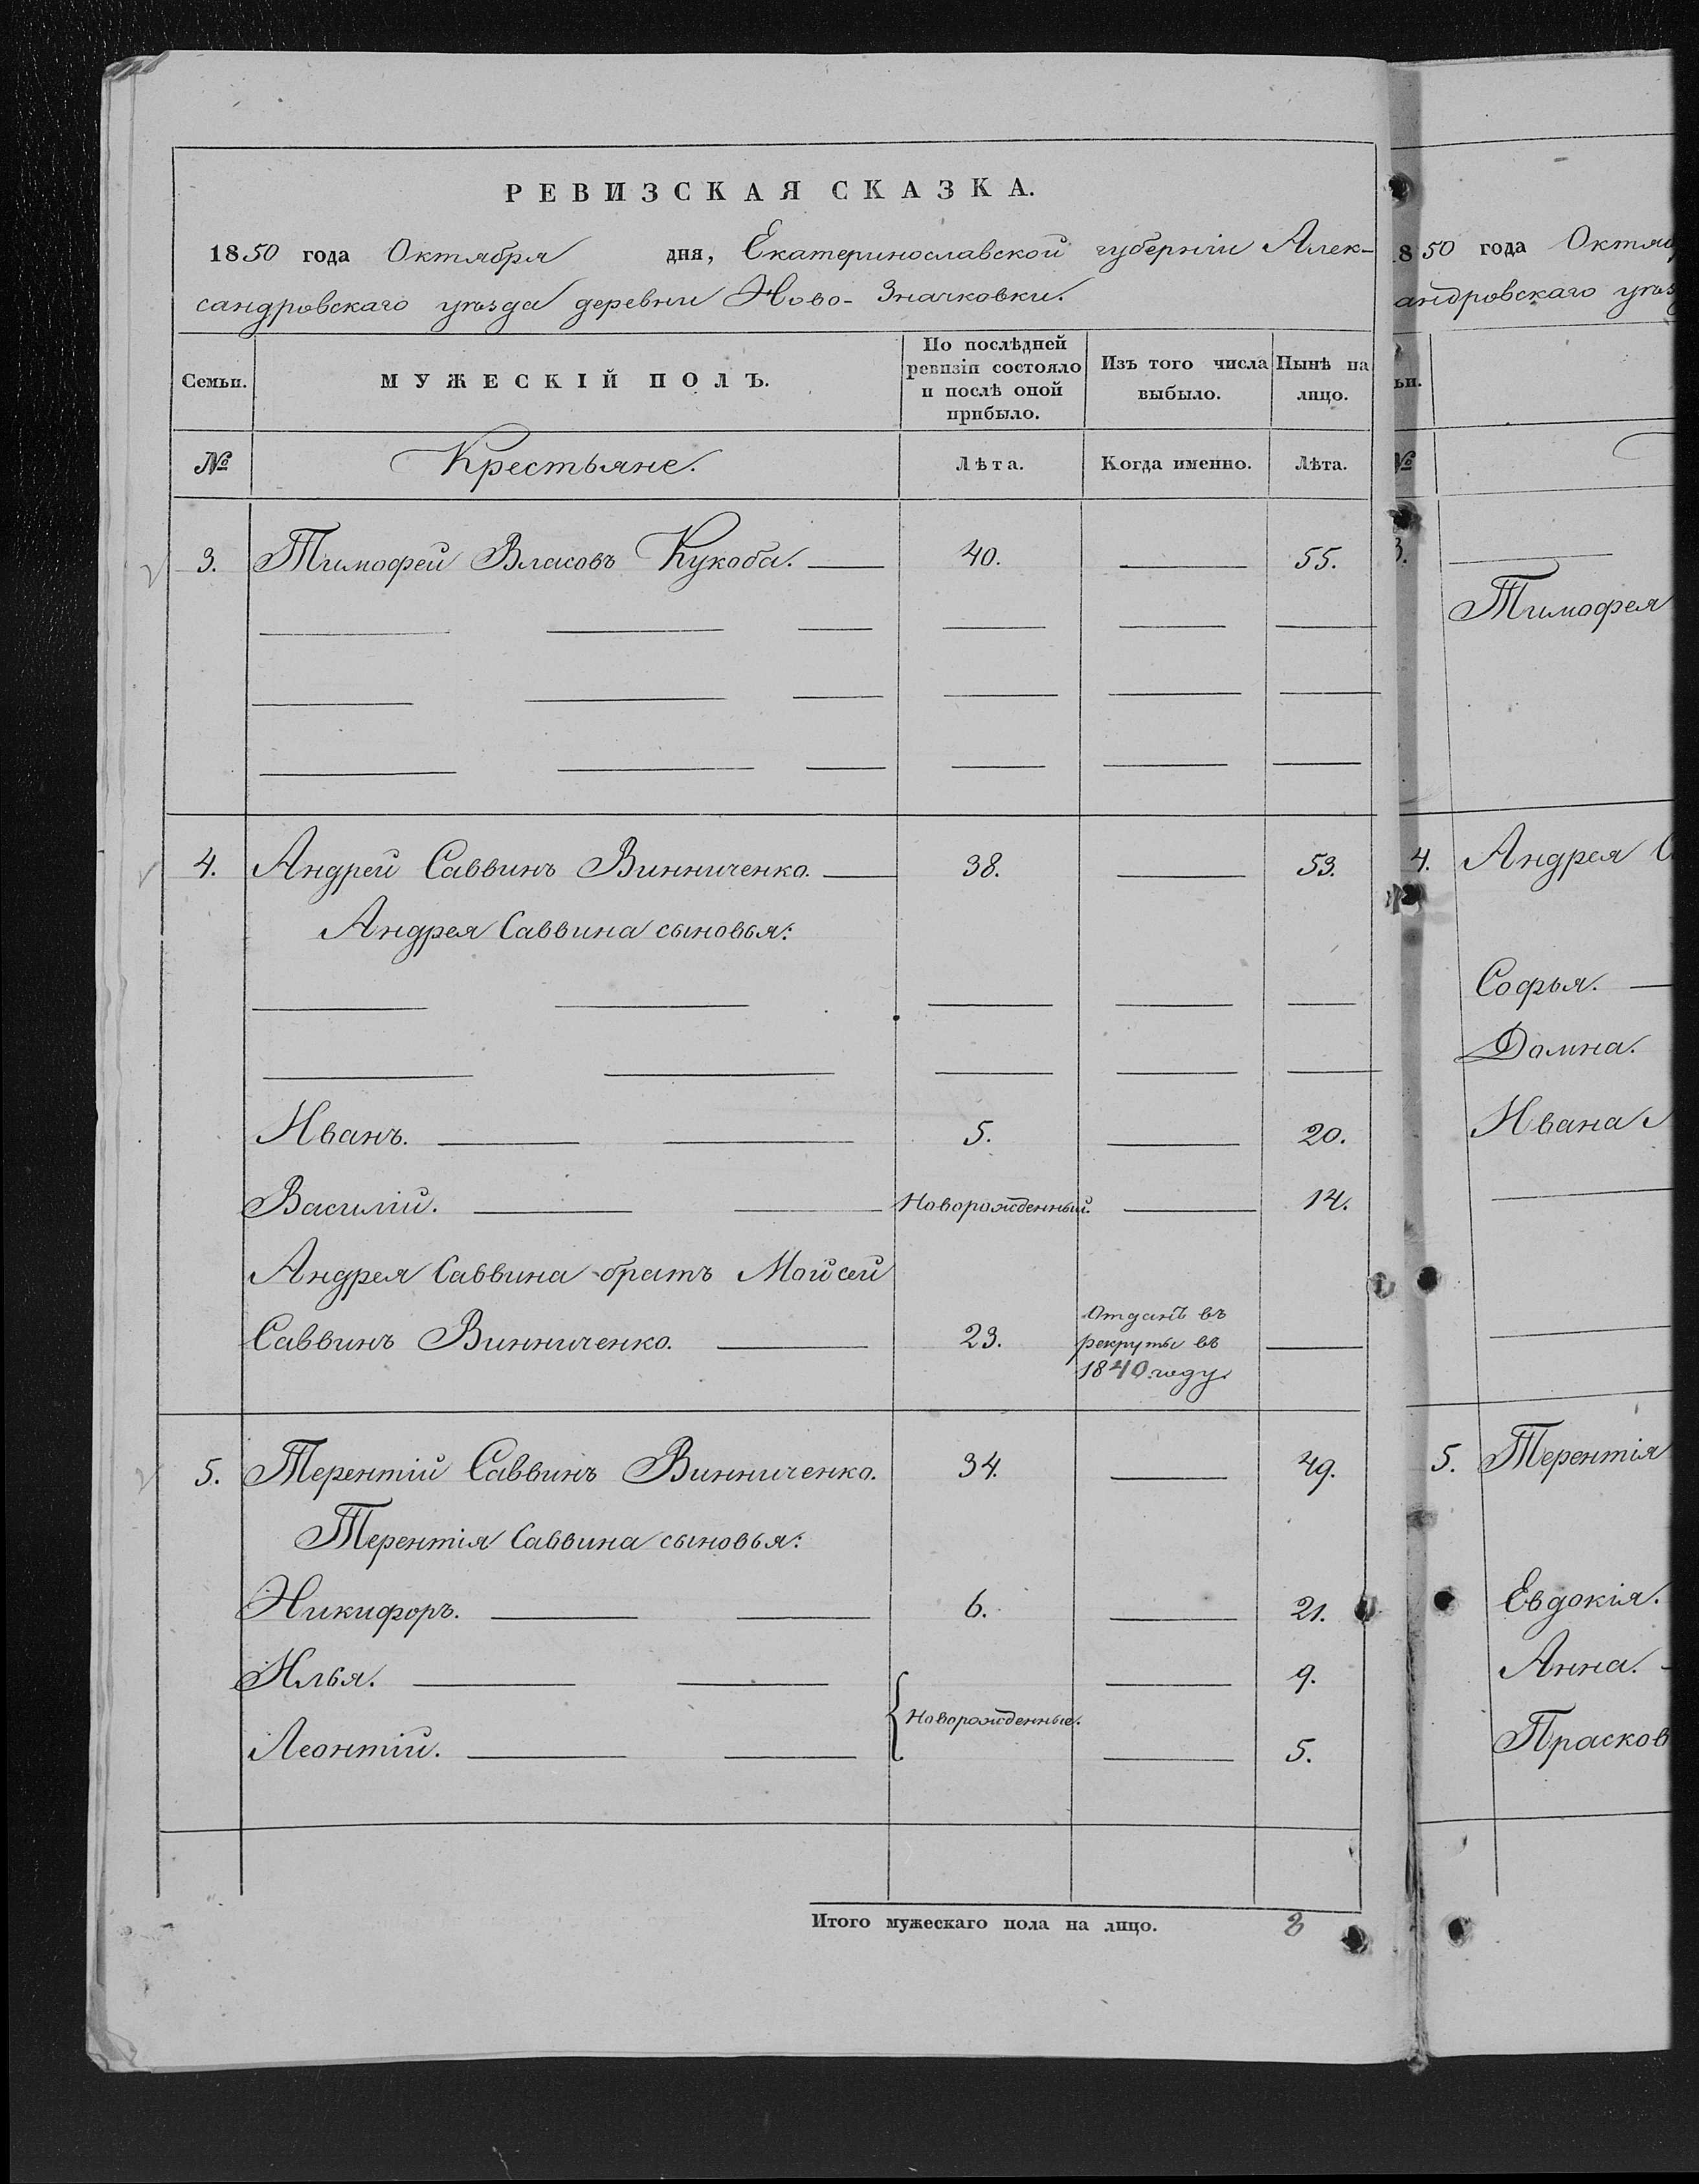 РЕВИЗСКАЯ СКАЗКА.
1850 года Октября дня, Екатеринославской губерніи Алек-
сандровскаго уѣзда деревни Ново-Значковки.
Семьи.
МУЖЕСКІЙ ПОЛЪ.
По послѣдней
ревизіи состояло
и послѣ оной
прибыло.
Изъ того числа
выбыло.
Нынѣ на
лицо.
№ Крестьяне. Лѣта. Когда именно. Лѣта.
3. Тимофей Власовъ Кукоба. 40. 55.
4. Андрей Саввинъ Винниченко. 38. 53.
Андрея Саввина сыновья:
Иванъ. 5. 20.
Василій. Новорожденный. 14.
Андрея Саввина братъ Мойсей
Саввинъ Винниченко. 23.
Отданъ въ
рекруты въ
1840 году.
5. Терентій Саввинъ Винниченко. 34. 49.
Терентія Саввина сыновья:
Никифоръ. 6. 21.
Илья. 9.
Новорожденные.
Леонтій. 5.
Итого мужескаго пола на лицо. 8
850 года Октяб
андровскаго уѣз
ьи.
№
3.
Тимофея
4. Андрея С
Софья.
Домна.
Ивана
5. Терентія
Евдокія.
Анна.
Прасков